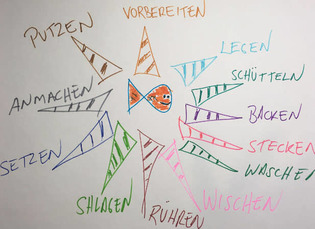 VORBEREITEN
PUTZEN
LEGEN
SCHÜTTELN
ANMACHEN
BACKEN
STECKEN
SETZEN
WASCHEN
SHLAGEN
RÜHREN
WISCHEN